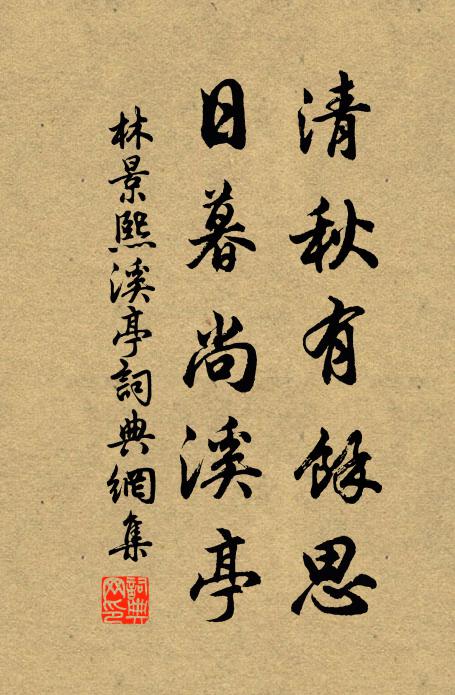 清秋有餘思
日暮尚溪亭
林景熙溪亭詞典網集
詞典网印